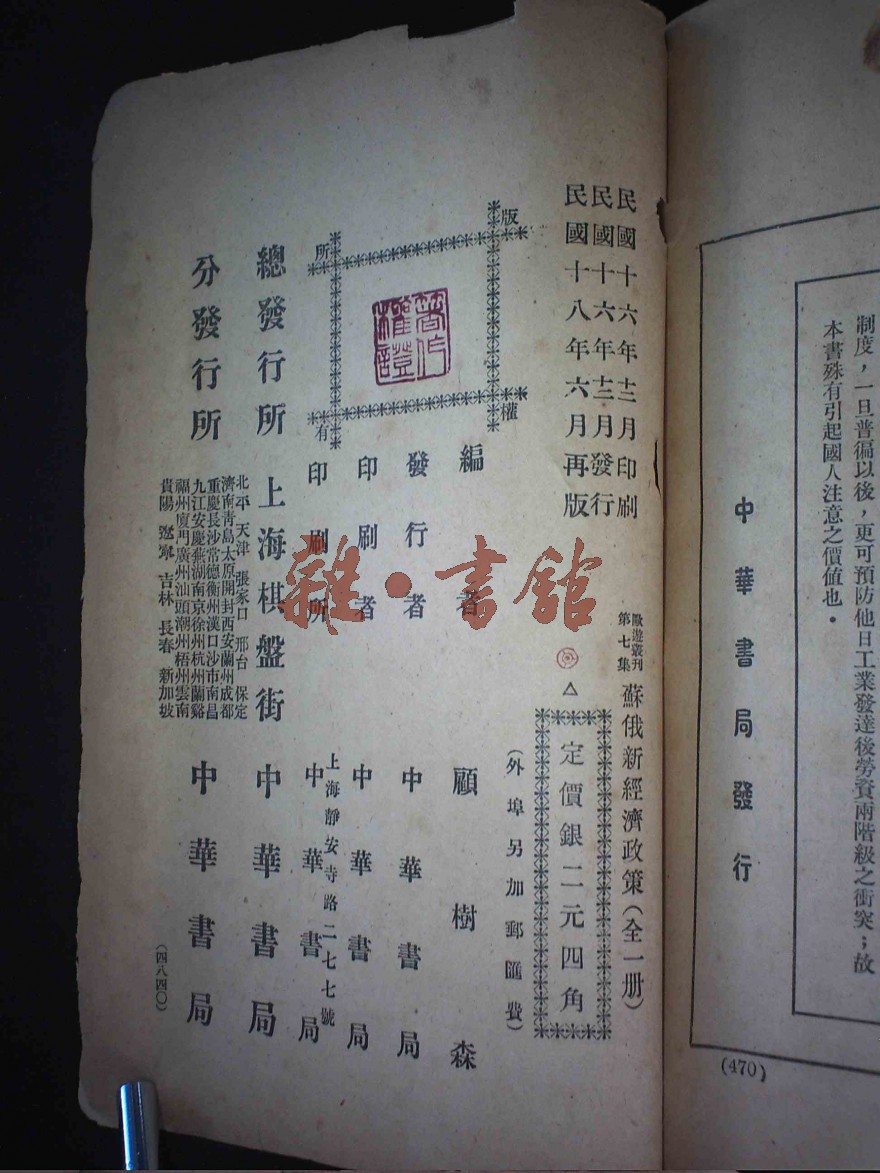 制度，一旦普徧以後，更可預防他日工業發達後勞資兩階級之衝突；故
本書殊有引起國人注意之價值也．
中華書局發行
(470)
民國十六年十二月印刷
民國十六年十二月發行
民國十八年六月再版
歐遊叢刊第七集
蘇俄新經濟政策（全一册）
定價銀二元四角
（外埠另加郵匯費）
編者 顧樹森
發行者 中華書局
印刷者 中華書局
印刷所 上海靜安寺路二七七號 中華書局
版權所有
著作權證
總發行所 上海棋盤街 中華書局
分發行所 中華書局
北平 天津 張家口 邢台 保定
濟南青島太原開封西安蘭州成都
重慶長沙常德衡州漢口沙市南昌
九江安慶蕪湖南京徐州杭州蘭谿
福州廈門廣州汕頭潮州梧州雲南
貴陽 遼寧 吉林 長春 新加坡
（四八四〇）
雜·書館